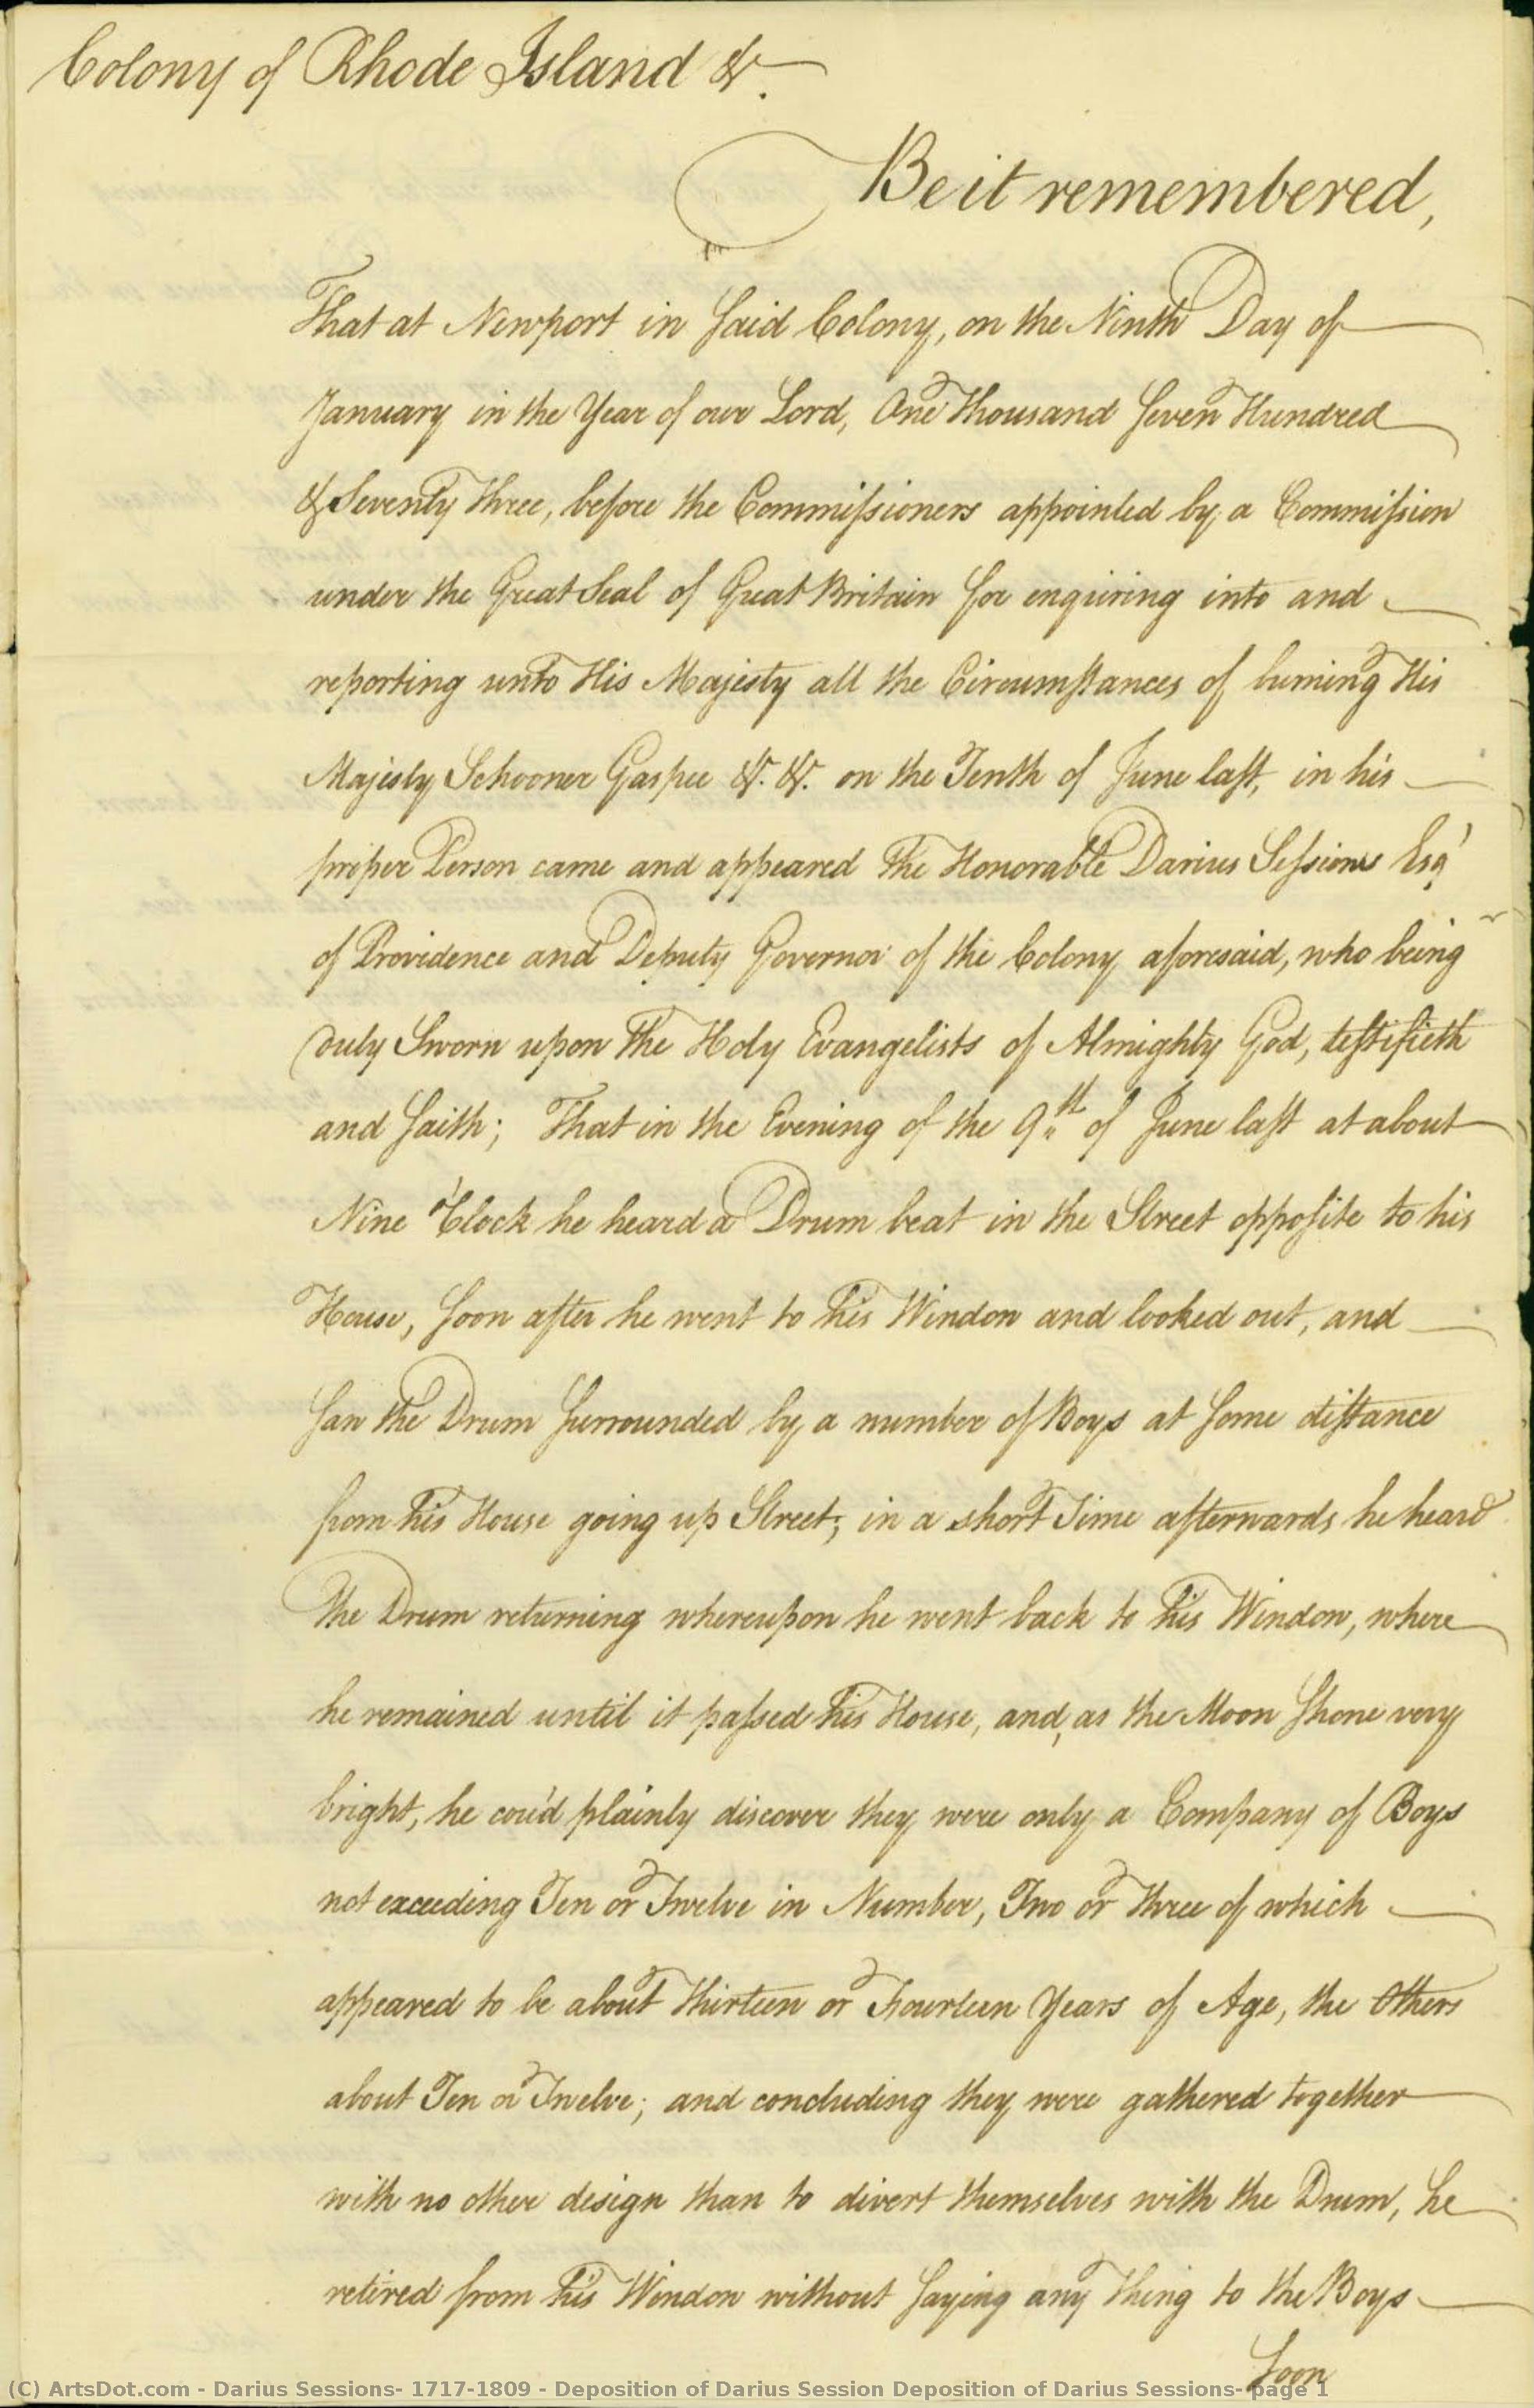 Colony of Rhode Island &c.
Be it remembered,
That at Newport in said Colony, on the Ninth Day of
January in the Year of our Lord, One Thousand Seven Hundred
& Seventy Three, before the Commissioners appointed by a Commission
under the Great Seal of Great Britain for enquiring into and
reporting unto His Majesty all the Circumstances of burning His
Majesty Schooner Gaspee &c. &c. on the Tenth of June last, in his
proper Person came and appeared The Honorable Darius Sessions Esqr
of Providence and Deputy Governor of the Colony aforesaid, who being
duly Sworn upon The Holy Evangelists of Almighty God, testifieth
and saith; That in the Evening of the 9th of June last at about
Nine o'Clock he heard a Drum beat in the Street opposite to his
House, soon after he went to his Window and looked out, and
saw the Drum surrounded by a number of Boys at some distance
from his House going up Street; in a short Time afterwards he heard
The Drum returning whereupon he went back to his Window, where
he remained until it passed his House, and, as the Moon shone very
bright, he cou'd plainly discover they were only a Company of Boys
not exceeding Ten or Twelve in Number, Two or Three of which
appeared to be about Thirteen or Fourteen Years of Age, the Others
about Ten or Twelve; and concluding they were gathered together
with no other design than to divert themselves with the Drum, he
retired from his Window without saying any Thing to the Boys
Soon
(C) ArtsDot.com - Darius Sessions- 1717-1809 - Deposition of Darius Session Deposition of Darius Sessions- page 1